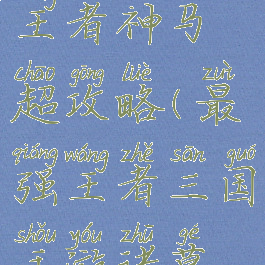 王者神马
chāo gōng lüè zuì
超攻略(最
qiáng wáng zhě sān guó
强王者三国
shǒu yóu zhū gě
手游诸葛